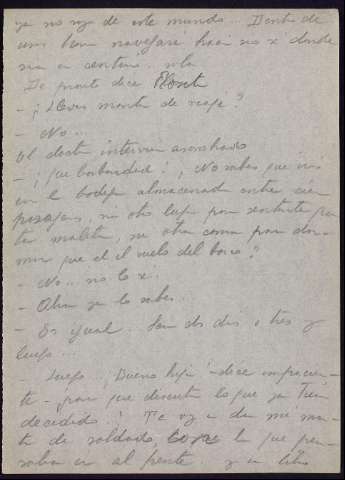 ya no soy de este mundo... Dentro de
una hora navegaré hacia no sé donde
De pronto dice
- ¿Llevas manta de viaje?
- No...
El doctor interviene asombrado
- ¡Que barbaridad! ¿No sabes que irás
en la bodega almacenado entre cien
pasajeros, sin otro lugar para sentarte que
tu maleta, ni otra cama para dor-
mir que el suelo del barco?
- No... no lo sé.
- Ahora ya lo sabes.
- Es igual. Son dos dias o tres y
luego...
- Luego, ¡Bueno hijo! - dice impacien-
te - para que discutir lo que ya tienes
decidido! Te voy a dar mi man-
ta de soldado, la que pen-
saba en el frente y